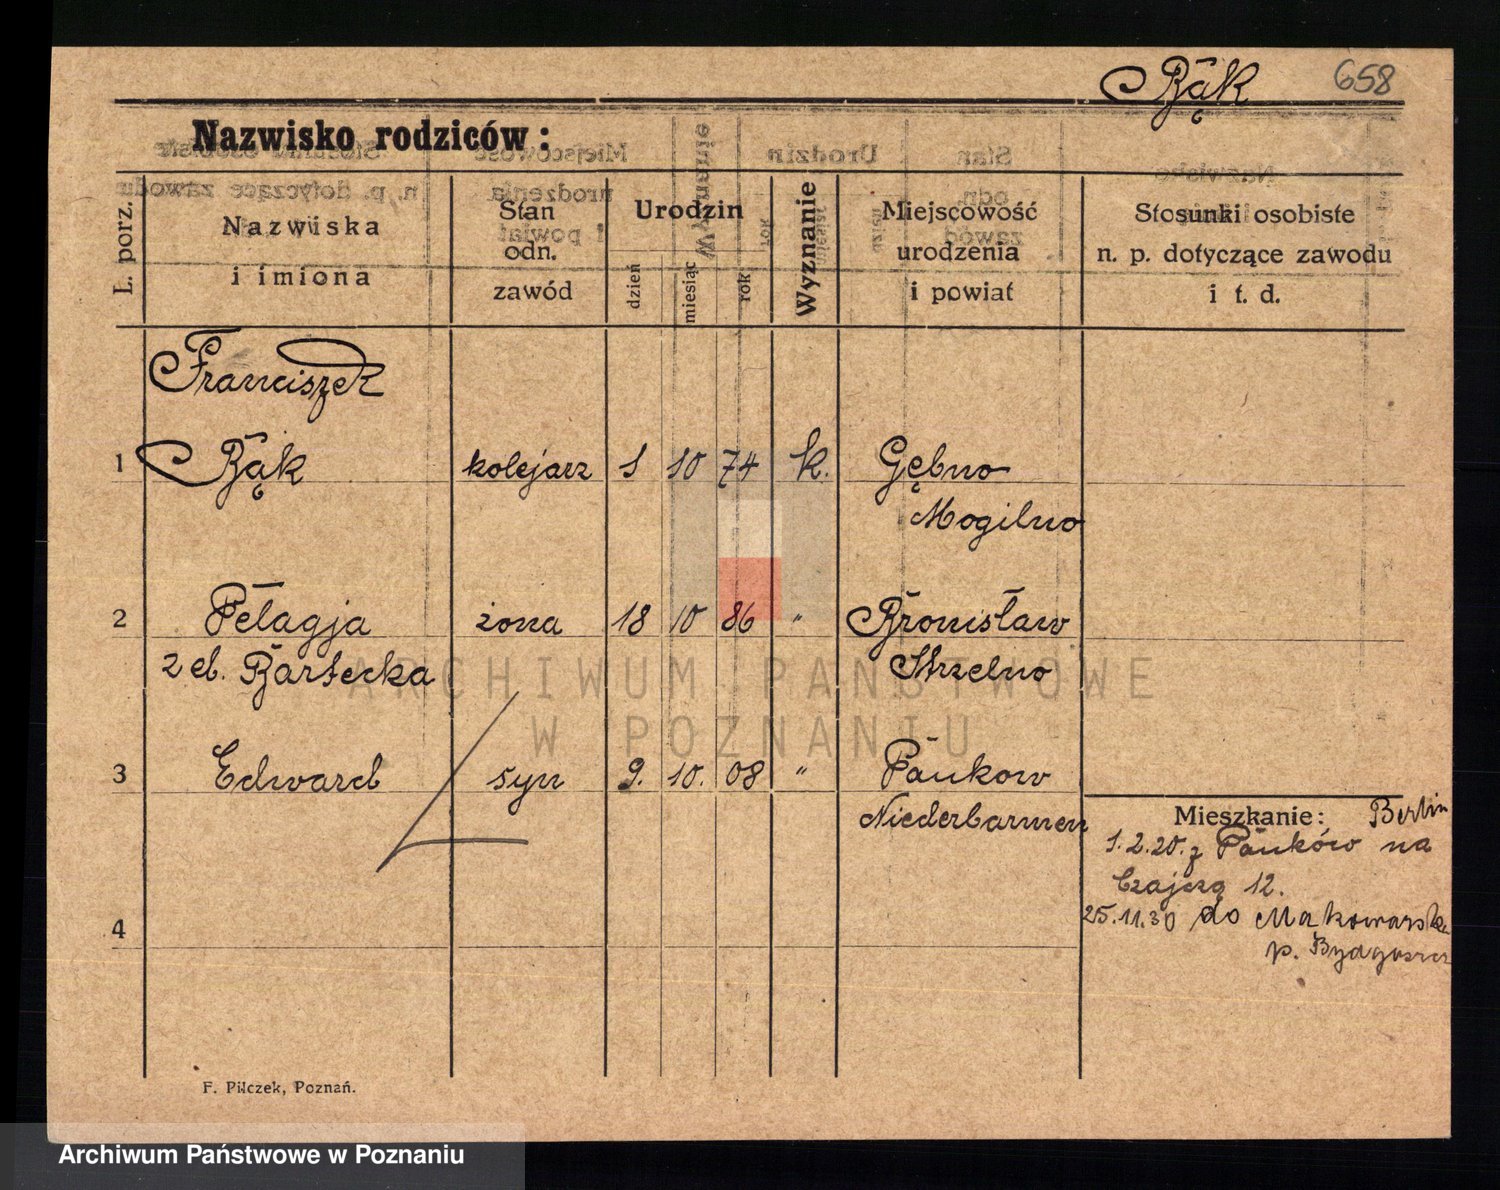 Bąk 658
Nazwisko rodziców:
L. porz.
Nazwiska
i imiona
Stan
odn.
zawód
Urodzin
dzień
miesiąc
rok
Wyznanie
Miejscowość
urodzenia
i powiat
Stosunki osobiste
n. p. dotyczące zawodu
i t. d.
Franciszek
1 Bąk kolejarz 1 10 74 k. Gębno
Mogilno
2 Pelagja żona 18 10 86 " Bronisław
z d. Bartecka Strzelno
3 Edward syn 9. 10. 08 " Pankow
Niederbarmen
Mieszkanie: Berlin
1.2.20. z Panków na
Czajczą 12.
4
25.11.30 do Makowarska
p. Bydgoszcz
F. Pilczek, Poznań.
ARCHIWUM PAŃSTWOWE
W POZNANIU
Archiwum Państwowe w Poznaniu